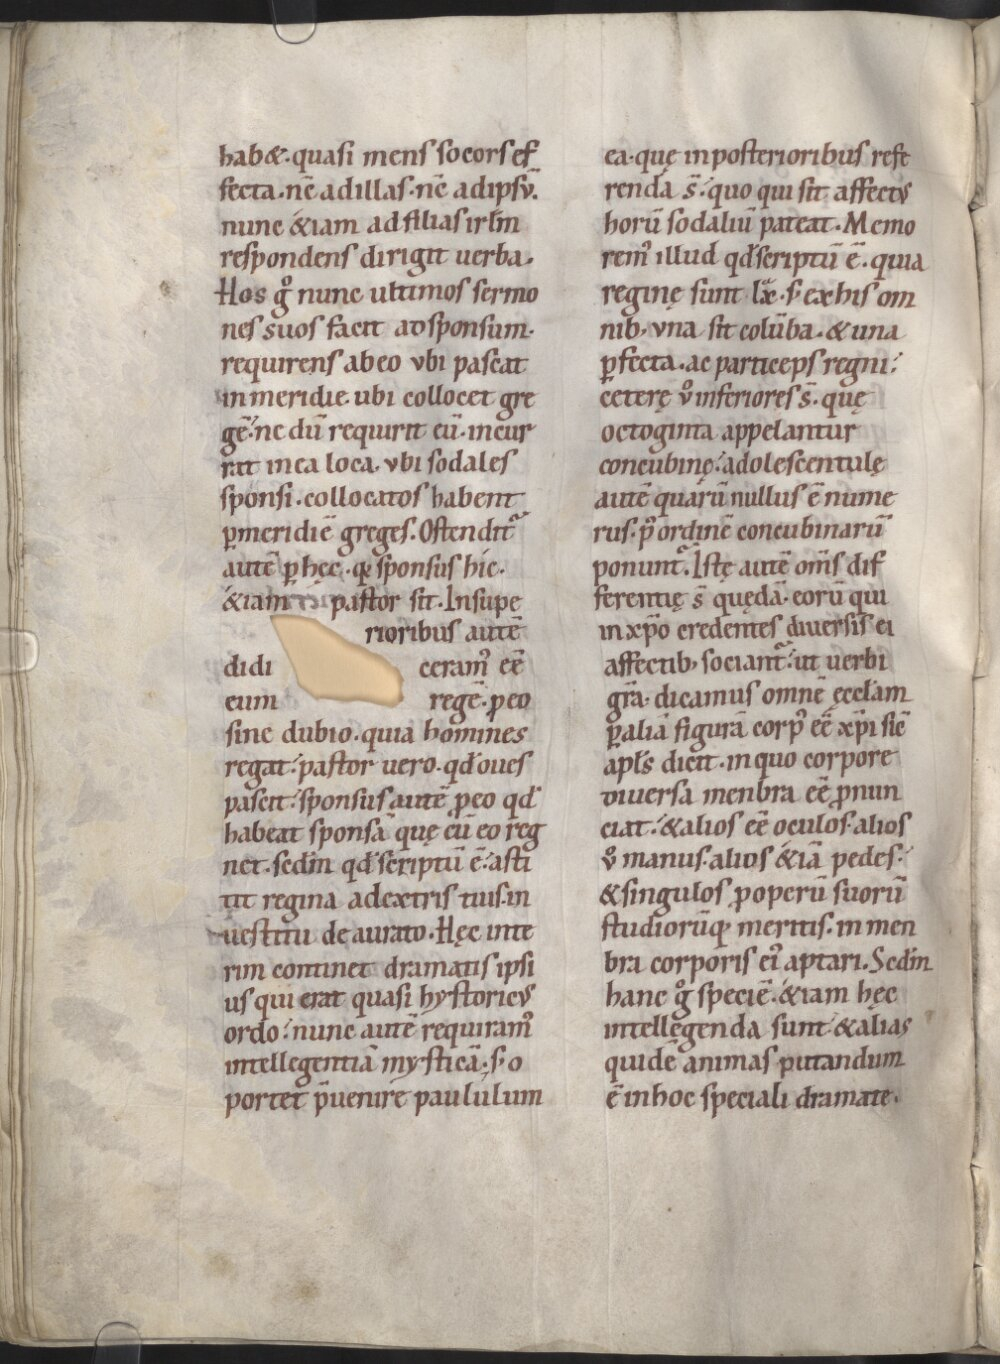 hab&. quasi mens socors ef
fecta. nē ad illas. nē ad ipsū.
nunc &iam ad filias irl̄m
respondens dirigit uerba.
Hos gͦ nunc ultimos sermo
nes suos facit ad sponsum.
requirens ab eo vbi pascat
in meridie. ubi collocet gre
gē. ne dū requirit eū. incur
rat in ea loca. vbi sodales
sponsi. collocatos habent
ꝑmeridiē greges. Ostendit᷑
autē ꝑ hęc. qꝫ sponsus hic.
&iam pastor sit. Insupe
rioribus autē
didi ceramꝰ eē
eum regē. ꝓ eo
sine dubio. quia homines
regat. pastor uero. qd̄ oues
pascit. sponsus autē ꝓ eo qd̄
habeat sponsā quę cū eo reg
net. sedm̄ qd̄ scriptū ē. asti
tit regina adextris tuis. in
uestitu de aurato. Hęc inte
rim continet dramatis ipsi
us qui erat quasi hystoricus
ordo. nunc autē requiramꝰ
intellegentiā mysticā. s; o
portet p̄uenire paululum
ea. quę in posterioribus refe
renda s̄. quo qui sit affectus
horū sodaliū pateat. Memo
remꝰ illud qd̄ scriptū ē. quia
reginę sunt lx. s; ex his om
nib; vna sit colūba. & una
ꝑfecta. ac particeps regni.
ceterę vͦ inferiores s̄. quę
octoginta appelantur
concubinę. adolescentulę
autē quarū nullus ē nume
rus. p᷒ ordinē concubinarū
ponunt᷑. Istę autē om̄s dif
ferentię s̄ quędā. eorū qui
in xp̄o credentes diuersis ei
affectib; sociant᷑. ut uerbi
gr̄a. dicamus omnē ęccl̄am
ꝑ aliā figurā corpꝰ eē xp̄i sic̄
apl̄s dicit. in quo corpore
diuersa menbra eē ꝓnun
ciat. & alios eē oculos. alios
vͦ manus. alios &iā pedes.
& singulos ꝓ operū suorū
studiorūqꝫ meritis. in men
bra corporis eiꝰ aptari. Sedm̄
hanc gͦ speciē. &iam hęc
intellegenda sunt. & alias
quidē animas putandum
ē in hoc speciali dramate.